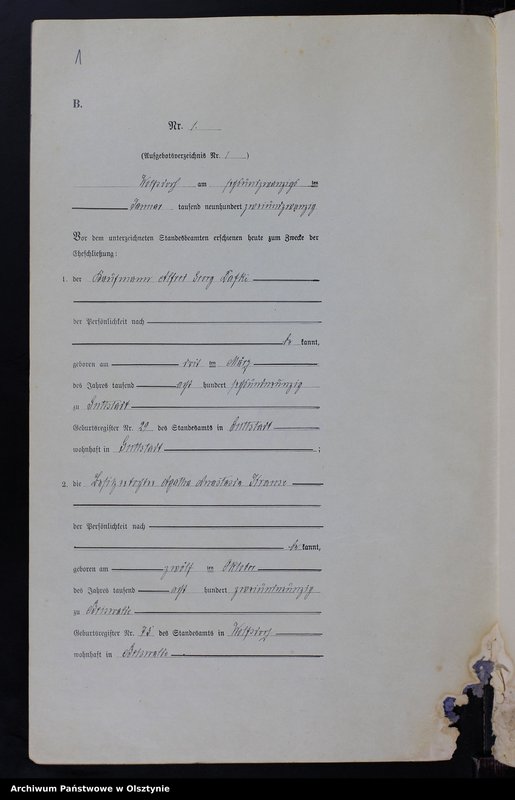 1
B.
Nr. 1.
(Aufgebotsverzeichnis Nr. 1)
Wolfsdorf am sechsundzwanzigsten
Januar tausend neunhundert zweiundzwanzig
Vor dem unterzeichneten Standesbeamten erschienen heute zum Zwecke der
Eheschließung:
1. der Kaufmann Alfred Georg
der Persönlichkeit nach
be kannt,
geboren am März
des Jahres tausend acht hundert sechsundneunzig
zu Guttstadt
Geburtsregister Nr. 29 des Standesamts in Guttstadt
wohnhaft in Guttstadt ;
2. die Besitzertochter Agatha Anastasia
der Persönlichkeit nach
be kannt,
geboren am zwölf ten Oktober
des Jahres tausend acht hundert zweiundneunzig
zu
Geburtsregister Nr. 75 des Standesamts in Wolfsdorf
wohnhaft in
Archiwum Państwowe w Olsztynie